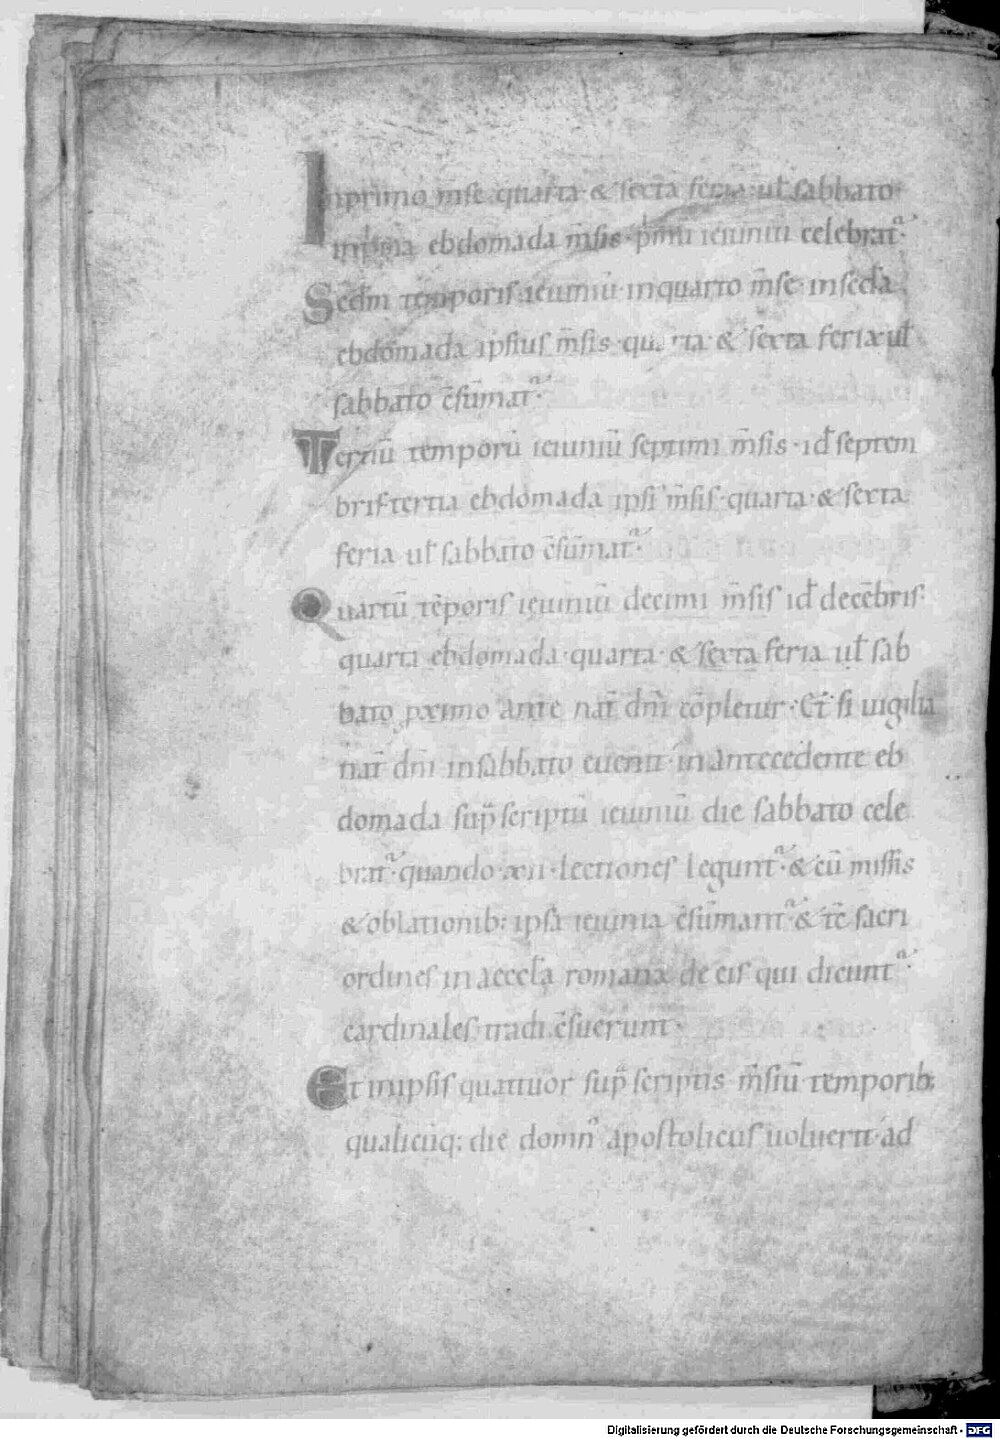 Inprimo m̄se · quarta · & sexta feria · ul̄ sabbato
inpͥma ebdomada m̄sis · pͥmu ieiuniū celebrat̄ᷣ ·
Sec̄dm temporis ieiuniū · inquarto m̄se · insec̄da
ebdomada ipsius m̄sis · quarta · & sexta feria ul̄
sabbato c̄sūmat̄ᷣ ·
Tertiū temporū ieiuniū septimi m̄sis · id̄ septem
bris · tertia ebdomada ipsiꝰ m̄sis · quarta · & sexta
feria ul̄ sabbato c̄sūmat̄ᷣ ·
Quartū tēporis ieiuniū decimi m̄sis id̄ decēbris ·
quarta ebdomada · quarta · & sexta feria ul̄ sab
bato pximo ante nat̄ dn̄i cōpletur · Et̄ si uigilia
nat̄ dn̄i insabbato euenit · in antecedente eb
domada sup̄scriptū ieiuniū die sabbato cele
brat̄ᷣ · quando · xii · lectiones legunt̄ᷣ · & cū missis
& oblationib; ipsa ieiunia c̄sūmant̄ᷣ · & tc̄ sacri
ordines in aeccl̄a romana de eis qui dicunt̄ᷣ ·
cardinales tradi c̄suerunt ·
Et inipsis quattuor sup̄scriptis m̄siū temporib;
qualicūq; die domn̄ᷤ apostolicus uoluerit · ad
Digitalisierung gefördert durch die Deutsche Forschungsgemeinschaft - DFG